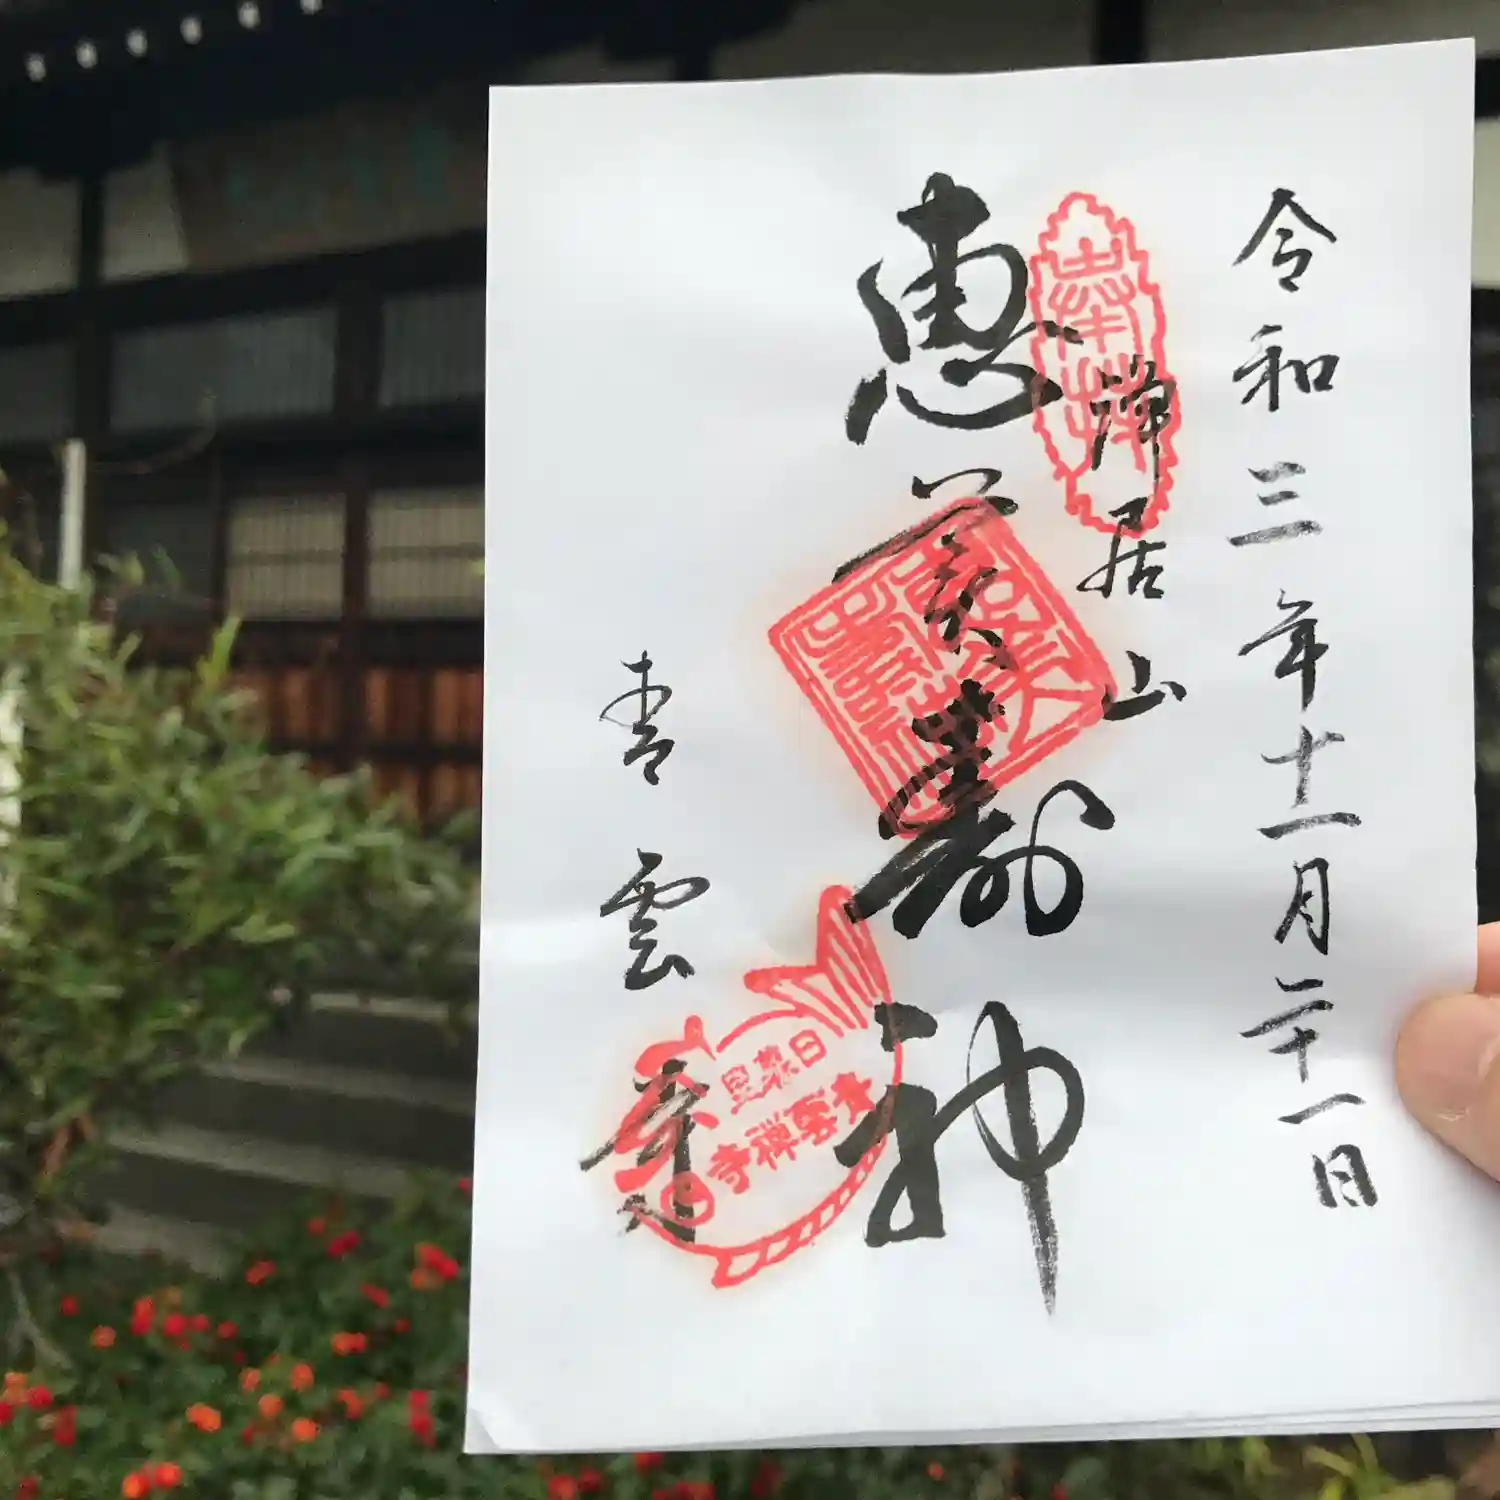 令和三年十一月二十一日
奉拝
浄居山
恵美寿神
青雲寺
日暮里
青雲禅寺